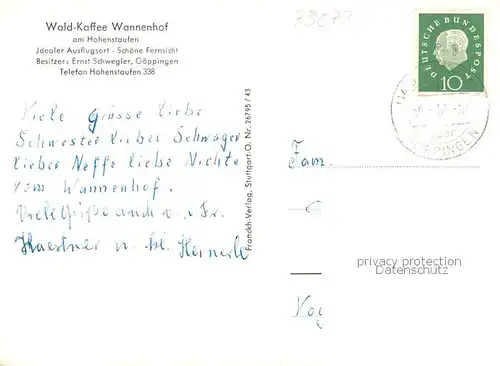 Wald-Kaffee Wannenhof
am Hohenstaufen
Jdealer Ausflugsort - Schöne Fernsicht
Besitzer: Ernst Schwegler, Göppingen
Telefon Hohenstaufen 338
Viele Grüsse liebe
Schwester lieber Schwager
lieber Neffe liebe Nichte
vom Wannenhof.
Viele Grüße auch v. Fr.
Haertner u. kl. Heinerle
Franckh-Verlag, Stuttgart-O. Nr. 26795/43
73073
DEUTSCHE BUNDESPOST
10
GÖPPINGEN
Fam.
privacy protection
Datenschutz